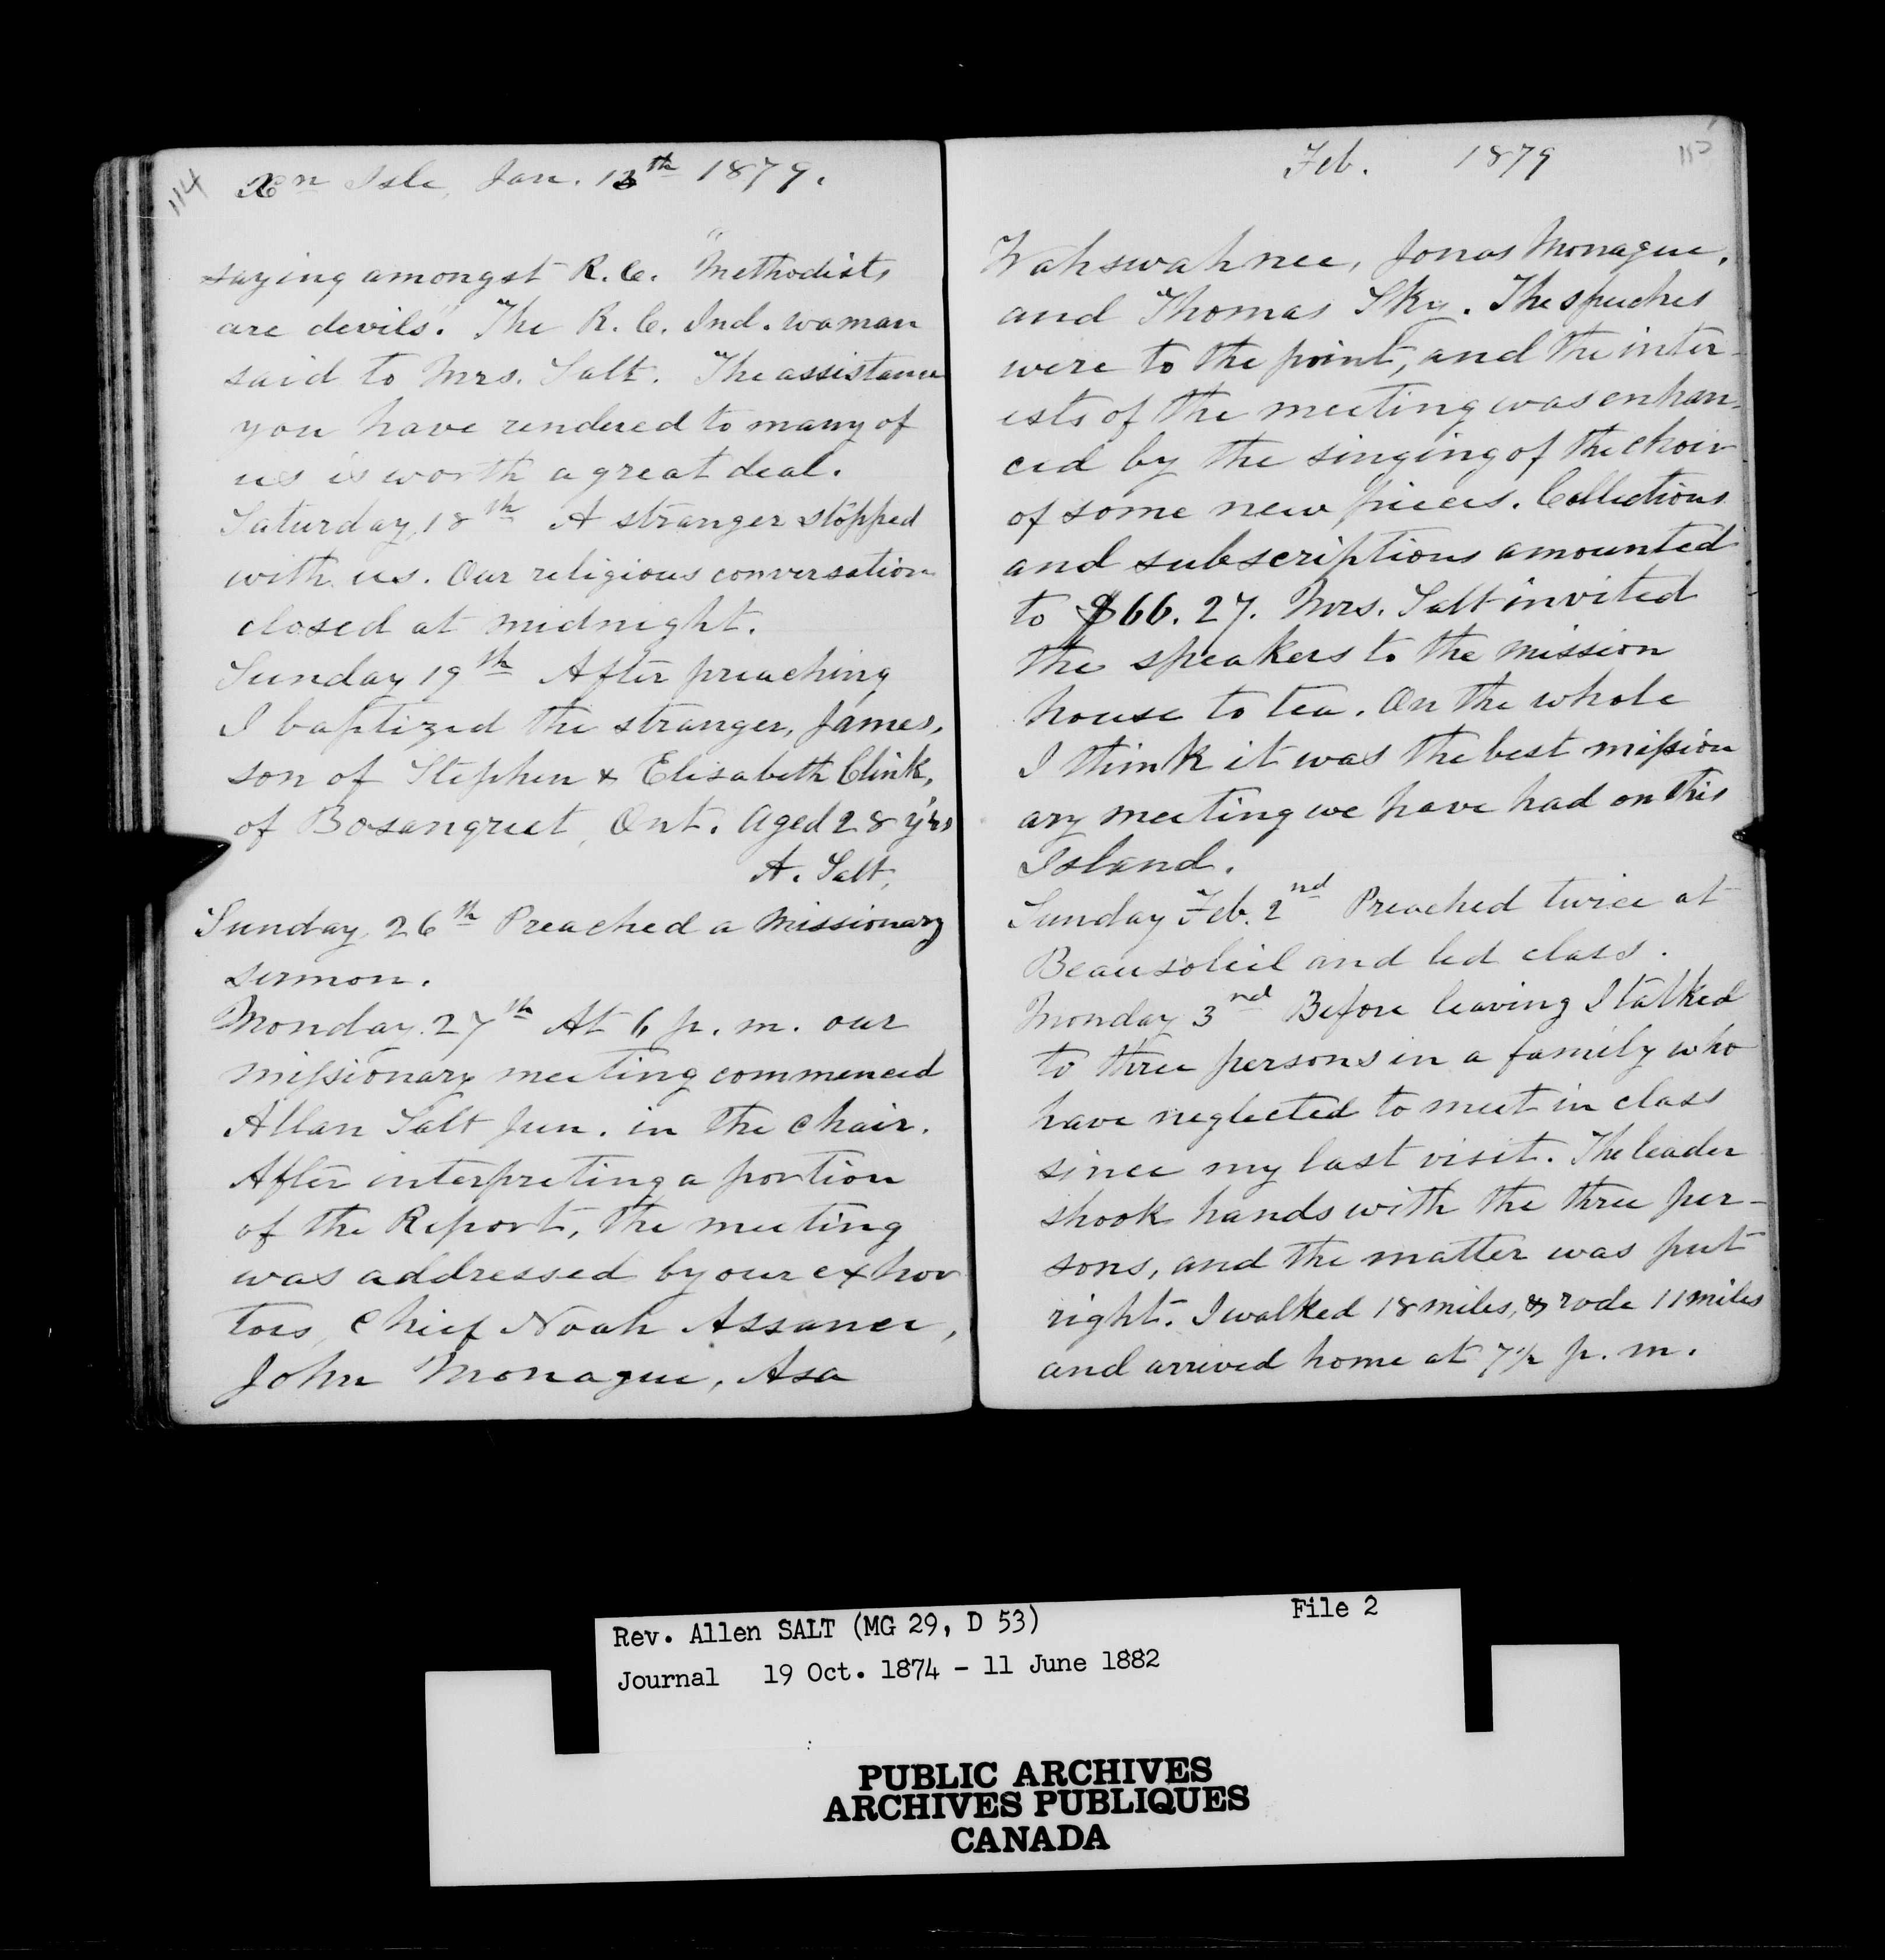 114
Xn Isle, Jan. 13th 1879.
saying amongst R. C. "Methodists
are devils". The R. C. Ind. woman
said to Mrs. Salt. The assistance
you have rendered to many of
us is worth a great deal.
Saturday, 18th A stranger stopped
with us. Our religious conversation
closed at midnight.
Sunday 19th After preaching
I baptized the stranger, James,
son of Stephen & Elisabeth Clink,
of Bosanquet, Ont. Aged 28 y'rs
A. Salt,
Sunday, 26th Preached a Missionary
sermon.
Monday. 27th At 6 p. m. our
missionary meeting commenced
Allan Salt Jun. in the chair.
After interpreting a portion
of the Report, the meeting
was addressed by our exhor
tors, Chief Noah Assance,
John Monague, Asa
Feb. 1879
115
Wahswahnee, Jonas Monague,
and Thomas Sky. The speeches
were to the point, and the inter-
ests of the meeting was enhan-
ced by the singing of the choir
of some new pieces. Collections
and subscriptions amounted
to $66.27. Mrs. Salt invited
the speakers to the mission
house to tea. On the whole
I think it was the best mission
ary meeting we have had on this
Island.
Sunday Feb. 2nd Preached twice at
Beausoleil and led class.
Monday 3nd Before leaving I talked
to three persons in a family who
have neglected to meet in class
since my last visit. The leader
shook hands with the three per-
sons, and the matter was put
right. I walked 18 miles, & rode 11 miles
and arrived home at 7½ p. m.
Rev. Allen SALT (MG 29, D 53) File 2
Journal 19 Oct. 1874 - 11 June 1882
PUBLIC ARCHIVES
ARCHIVES PUBLIQUES
CANADA